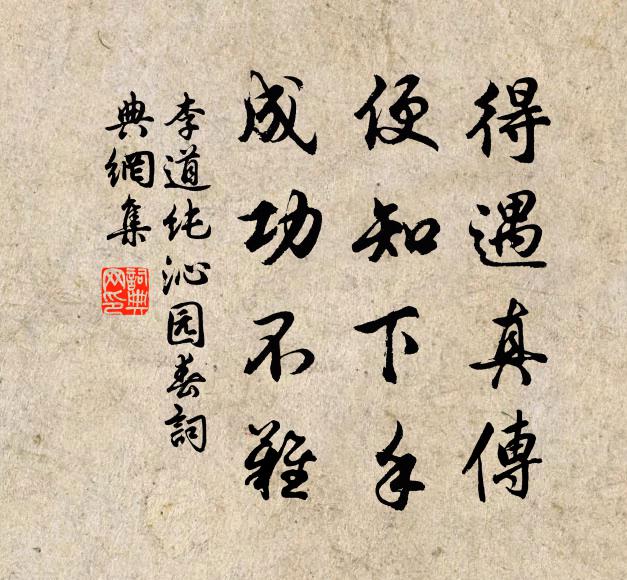 得遇真傳
便知下手
成功不難
李道純沁园春詞
典網集
詞典网印